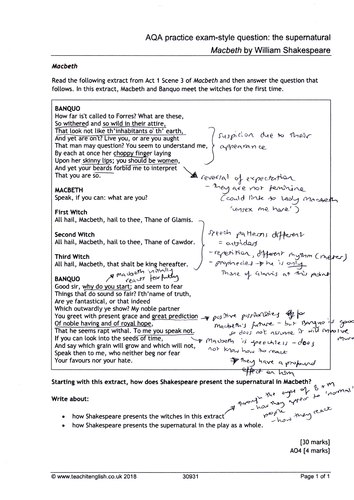 AQA practice exam-style question: the supernatural
Macbeth by William Shakespeare
Macbeth
Read the following extract from Act 1 Scene 3 of Macbeth and then answer the question
that follows. In this extract, Macbeth and Banquo meet the witches for the first time.
BANQUO
How far is't called to Forres? What are these,
So withered and so wild in their attire,
That look not like th'inhabitants o' th' earth,
And yet are on't? Live you, or are you aught
That man may question? You seem to understand me,
By each at once her choppy finger laying
Upon her skinny lips; you should be women,
And yet your beards forbid me to interpret
That you are so.
suspicion due to their
appearance
reversal of expectation
- they are not feminine
(could link to lady macbeth
'unsex me here')
MACBETH
Speak, if you can: what are you?
First Witch
All hail, Macbeth, hail to thee, Thane of Glamis.
Second Witch
All hail, Macbeth, hail to thee, Thane of Cawdor.
Third Witch
All hail, Macbeth, that shalt be king hereafter.
speech patterns different
= outsiders
- repetition, different rhythm (meter)
- prophecies → he is only
Thane of Glamis at this point
BANQUO
macbeth initially
reacts fearfully
Good sir, why do you start; and seem to fear
Things that do sound so fair? I'th'name of truth,
Are ye fantastical, or that indeed
Which outwardly ye show? My noble partner
You greet with present grace and great prediction
Of noble having and of royal hope,
That he seems rapt withal. To me you speak not.
If you can look into the seeds of time,
And say which grain will grow and which will not,
Speak then to me, who neither beg nor fear
Your favours nor your hate.
positive possibilities for
macbeth's future - but Banquo is good
so does not assume it will involve
murder
macbeth is speechless - does
not know how to react
they have a profound
effect on him
Starting with this extract, how does Shakespeare present the supernatural in Macbeth?
Write about:
• how Shakespeare presents the witches in this extract
• how Shakespeare presents the supernatural in the play as a whole.
through the eyes of B + M
- how they appear to 'normal'
people
- how they react
[30 marks]
AO4 [4 marks]
© www.teachitenglish.co.uk 2018
30931
Page 1 of 1